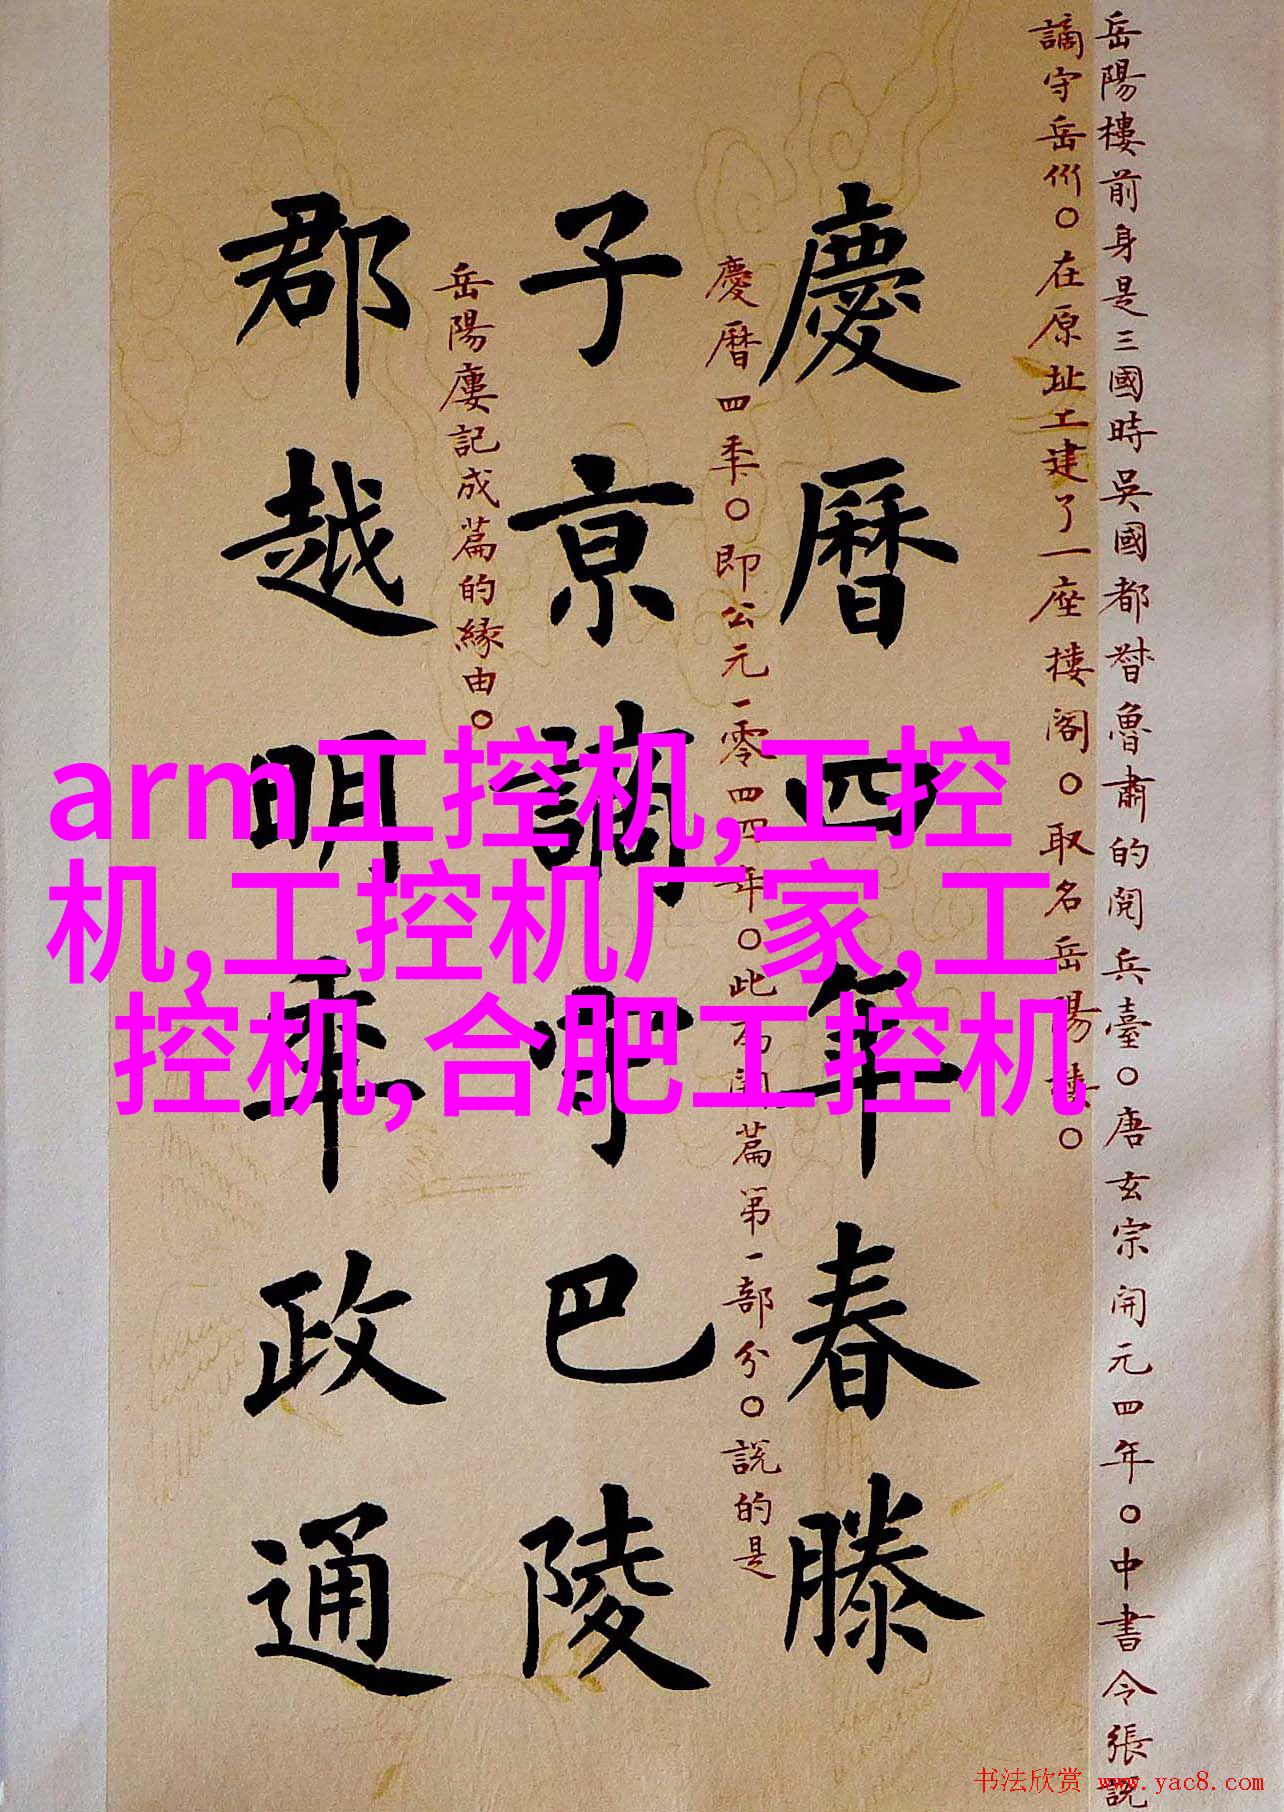 岳陽樓前身是三國時吳國都督魯肅的閱兵臺。唐玄宗開元四年。中書令張說
謫守岳州。在原址工建了一座樓阁。取名岳陽樓。
慶曆四年春滕
慶曆四年。即公元一零四四年。此為開篇第一部分。說的是
子京謫守巴陵
岳陽樓記成篇的緣由。
郡越明年政通
arm工控机,工控
机,工控机厂家,工
控机,合肥工控机
书法欣赏 www.yac8.com